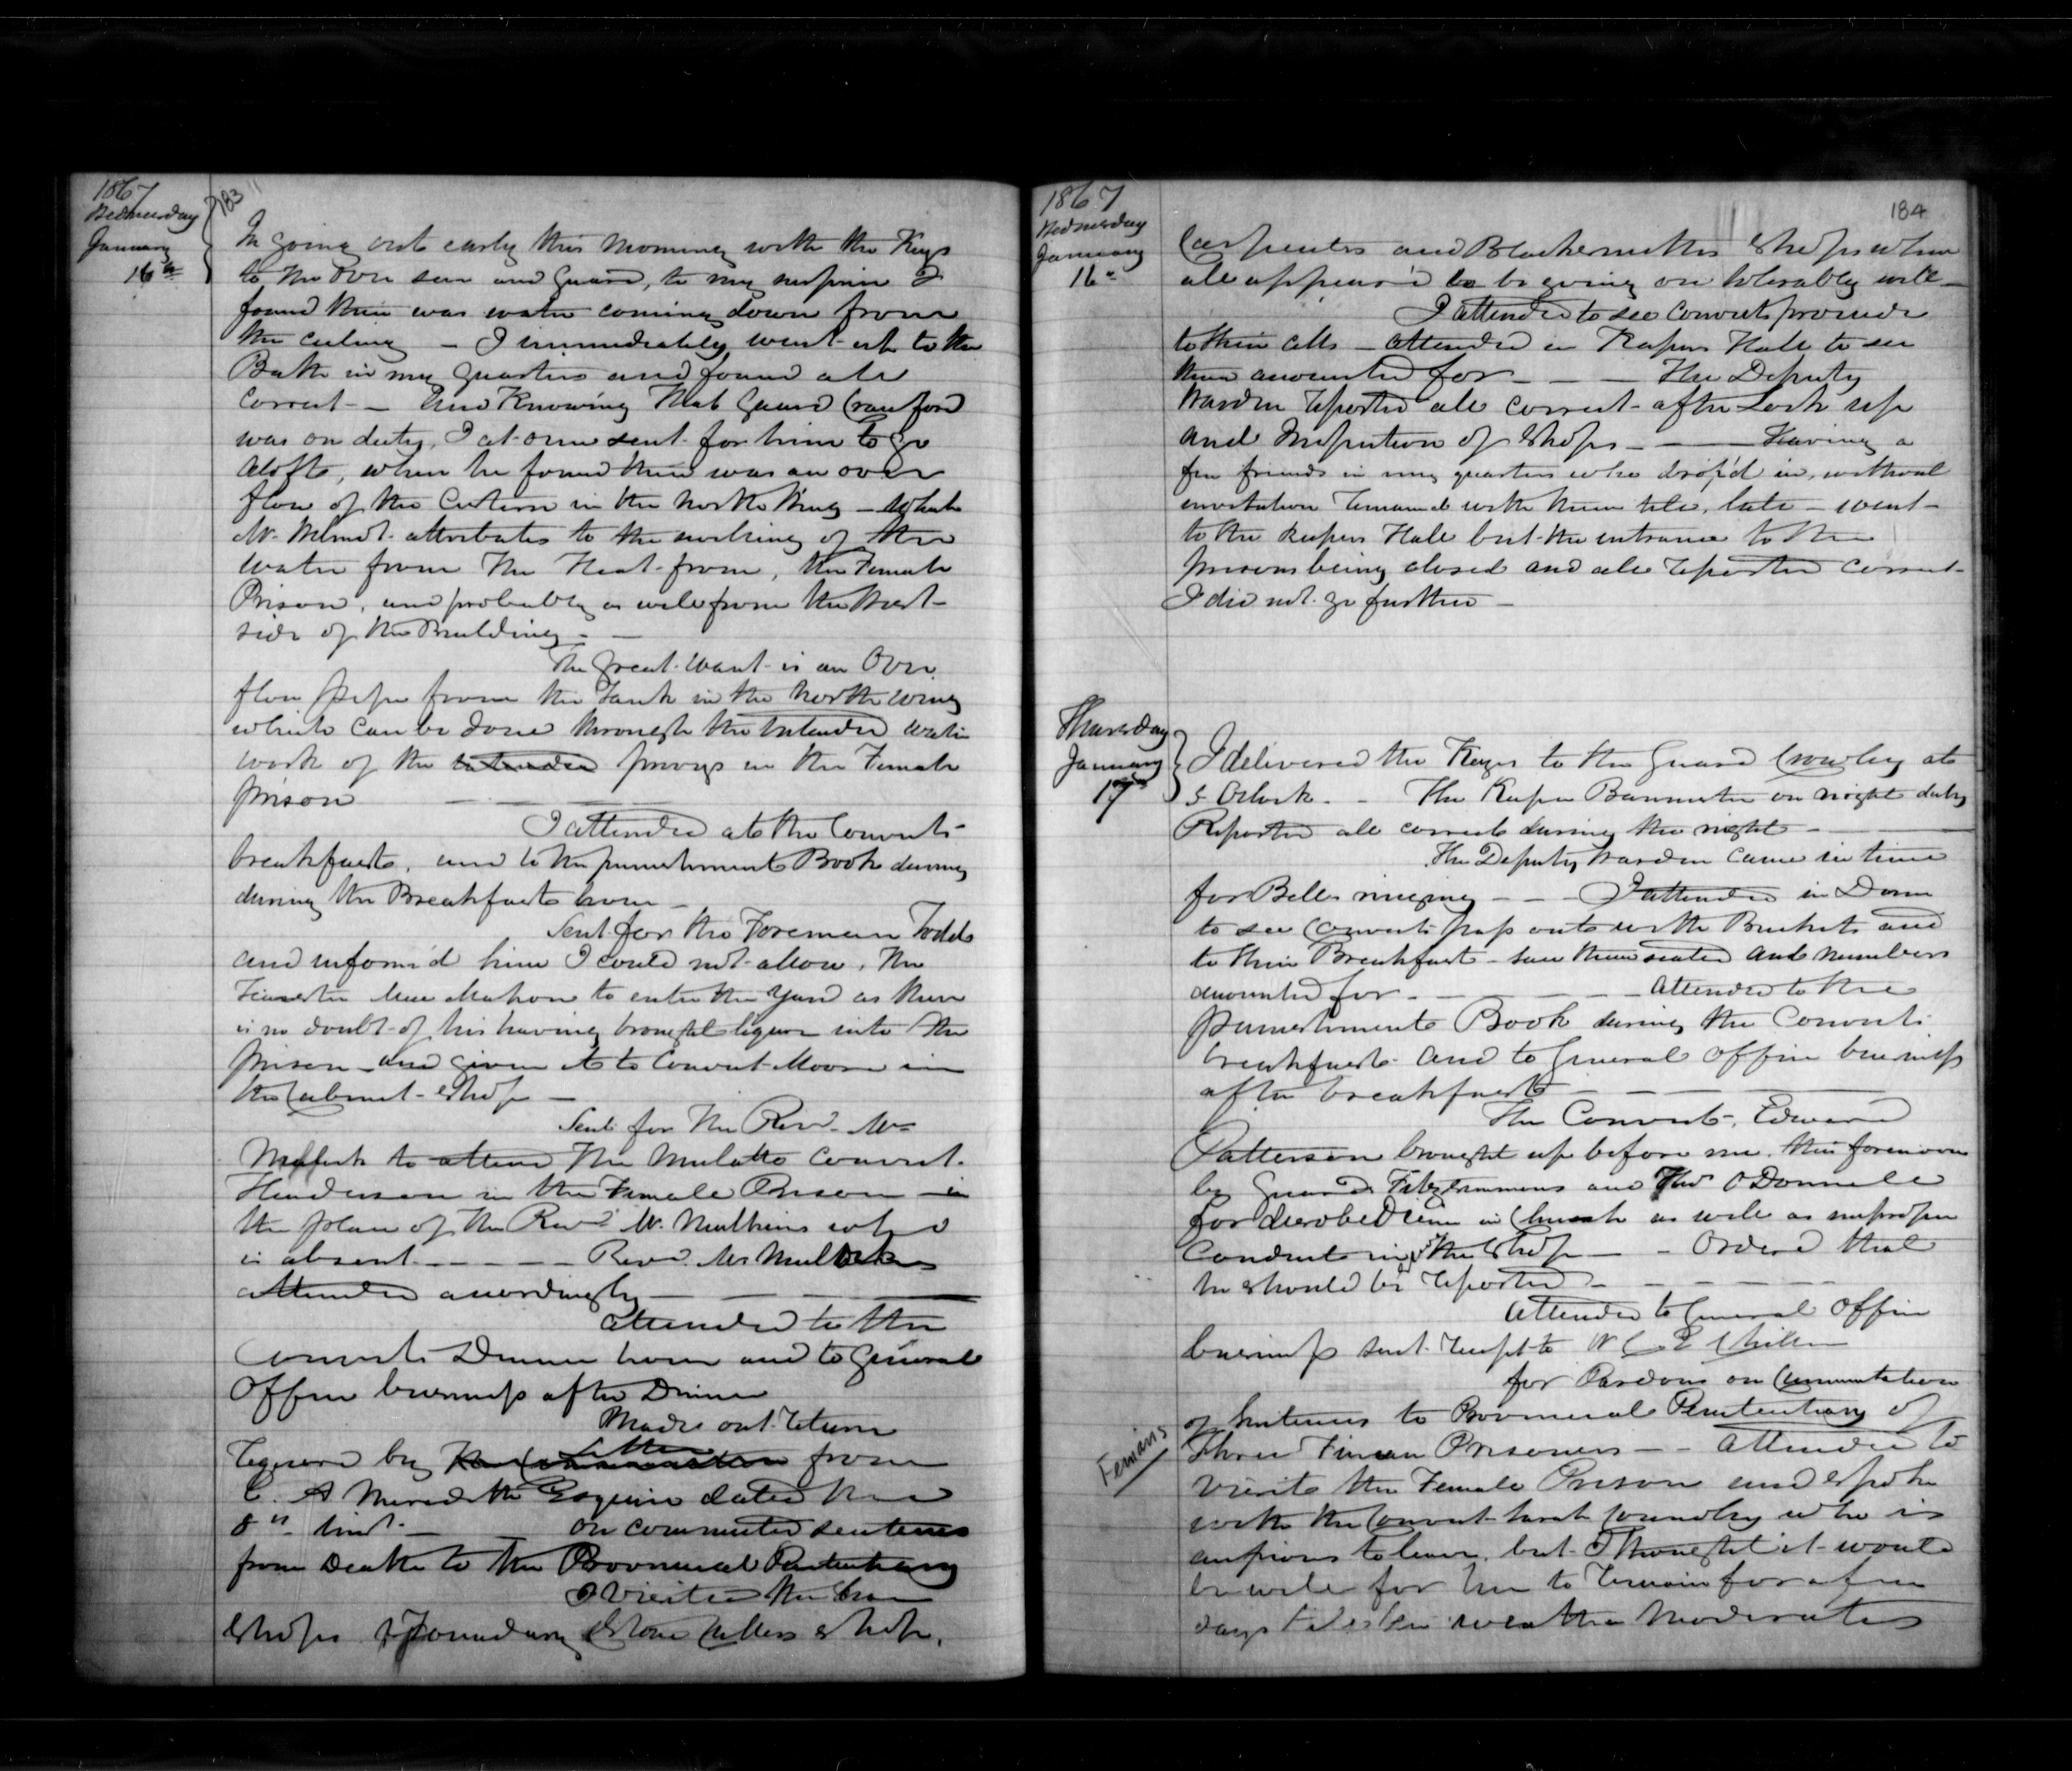 1867
Wednesday
January
16th
183
In going out early this morning with the Keys
to the Over seer and Guard, to my surprise I
found there was water coming down from
the ceiling — I immediately went up to the
Bath in my Quarters and found all
correct — and Knowing that Guard Crawford
was on duty, I at once sent for him to go
aloft, when he found there was an over
flow of the Cistern in the North Wing — which
Mr. attributes to the working of the
water from the Heat from, the Female
Prison, and probably as well from the West
side of the Building —
The great want is an Over
flow pipe from the Tank in the North wing
which can be done through the intended water
work of the intended privys in the Female
prison — — —
I attended at the Convicts
breakfast, and to the punishment Book during
during the Breakfast hour —
Sent for the Foreman Todd
and inform'd him I could not allow, the
Teamster Mahon to enter the Yard as there
is no doubt of his having brought liquor into the
prison and given it to Convict Moore in
the Cabinet Shop —
Sent for the Revd. Mr
to attend the Mulatto Convict
Henderson in the Female Prison in
the place of the Revd Mr. Mulkins who
is absent — — — — Revd. Mr
attended accordingly — — —
attended to the
Convicts Dinner hour and to General
Office business after Dinner
Made out return
required by the Letter from
E. A Meredith Esquire dated the
8th inst — on commuted sentences
from Death to the Provincial Penitentiary
I visited the
Shops Foundary Stone Cutters shop,
1867
Wednesday
January
16th
184
Carpenters and Blacksmiths Shops when
all appear'd to be going on tolerably well —
I attended to see Convicts promde
to their cells — attended in Keepers Hall to see
them accounted for — — — The Deputy
Warden reported all correct after Lock up
and Inspection of Shops — — Having a
few friends in my quarters who drop'd in, without
invitation remained with them till, late — went
to the Keepers Hall but the entrance to the
prisons being closed and all reported correct
I did not go further —
Thursday
January
17th
I delivered the Keys to the Guard Crowley at
5 Oclock. — The Keeper Bannister on night duty
Reported all correct during the night — —
The Deputy Warden came in time
for Bell ringing — — I attended in Dome
to see Convicts pass out with Buckets and
to their Breakfast — saw them seated and numbers
accounted for — — — Attended to the
punishment Book during the Convicts
breakfast and to General Office business
after breakfast — — —
The Convict, Edward
Patterson brought up before me this forenoon
by Guards Fitzsimmons and Thos ODonnell
for disobedience in Church as well as improper
conduct in the Shop — — Ordered that
he should be reported — — — —
Attended to General Office
business sent receipt to
for Pardons on Commutation
of sentences to Provincial Penitentiary of
Fenians
Three Fenian Prisoners — — Attended to
visit the Female Prison and spoke
with the Convict Sarah who is
anxious to leave, but I thought it would
be well for her to remain for a few
days till the weather moderates